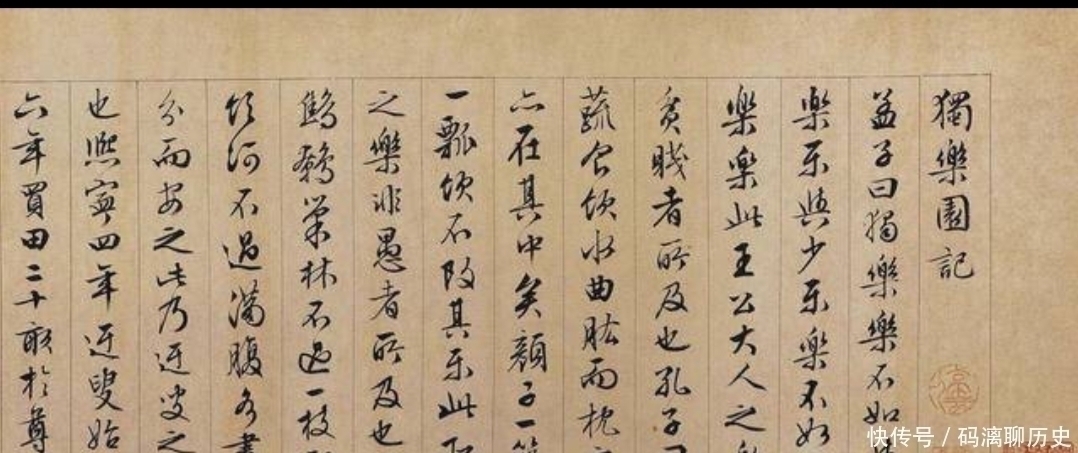 獨樂園記
孟子曰獨樂樂不如
樂樂與少樂樂不如
樂樂此王公大人之
貧賤者所及也孔子
蔬食飲水曲肱而枕
亦在其中矣顏子一
一瓢飲不改其樂此
之樂非愚者所及也
鷦鷯巢林不過一枝
飲河不過滿腹各盡
分而安之此乃迂叟之
也熙寧四年迂叟始
六年買田二十畝於尊
快传号 / 码漓聊历史